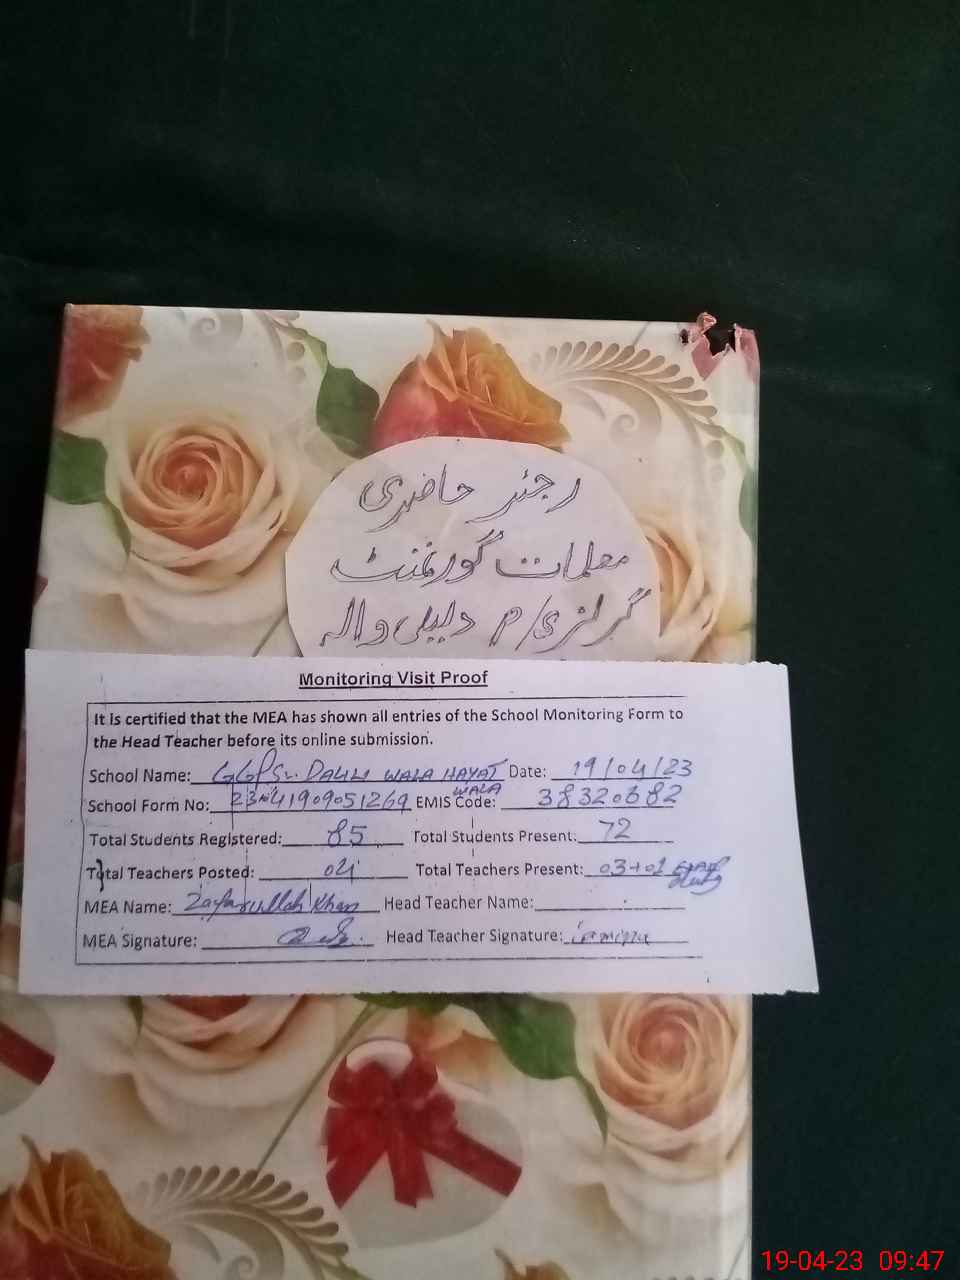 رجسٹر حاضری
معلمات گورنمنٹ
گرلز پی/م دلیلی والہ
Monitoring Visit Proof
It is certified that the MEA has shown all entries of the School Monitoring Form to
the Head Teacher before its online submission.
School Name: GGPS DALILI WALA HAYAT WALA Date: 19/04/23
School Form No: 41909051269 EMIS Code: 38320382
Total Students Registered: 85 Total Students Present: 72
Total Teachers Posted: 04 Total Teachers Present: 03+01
MEA Name: Zafarullah Khan Head Teacher Name:
MEA Signature: Head Teacher Signature:
19-04-23 09:47